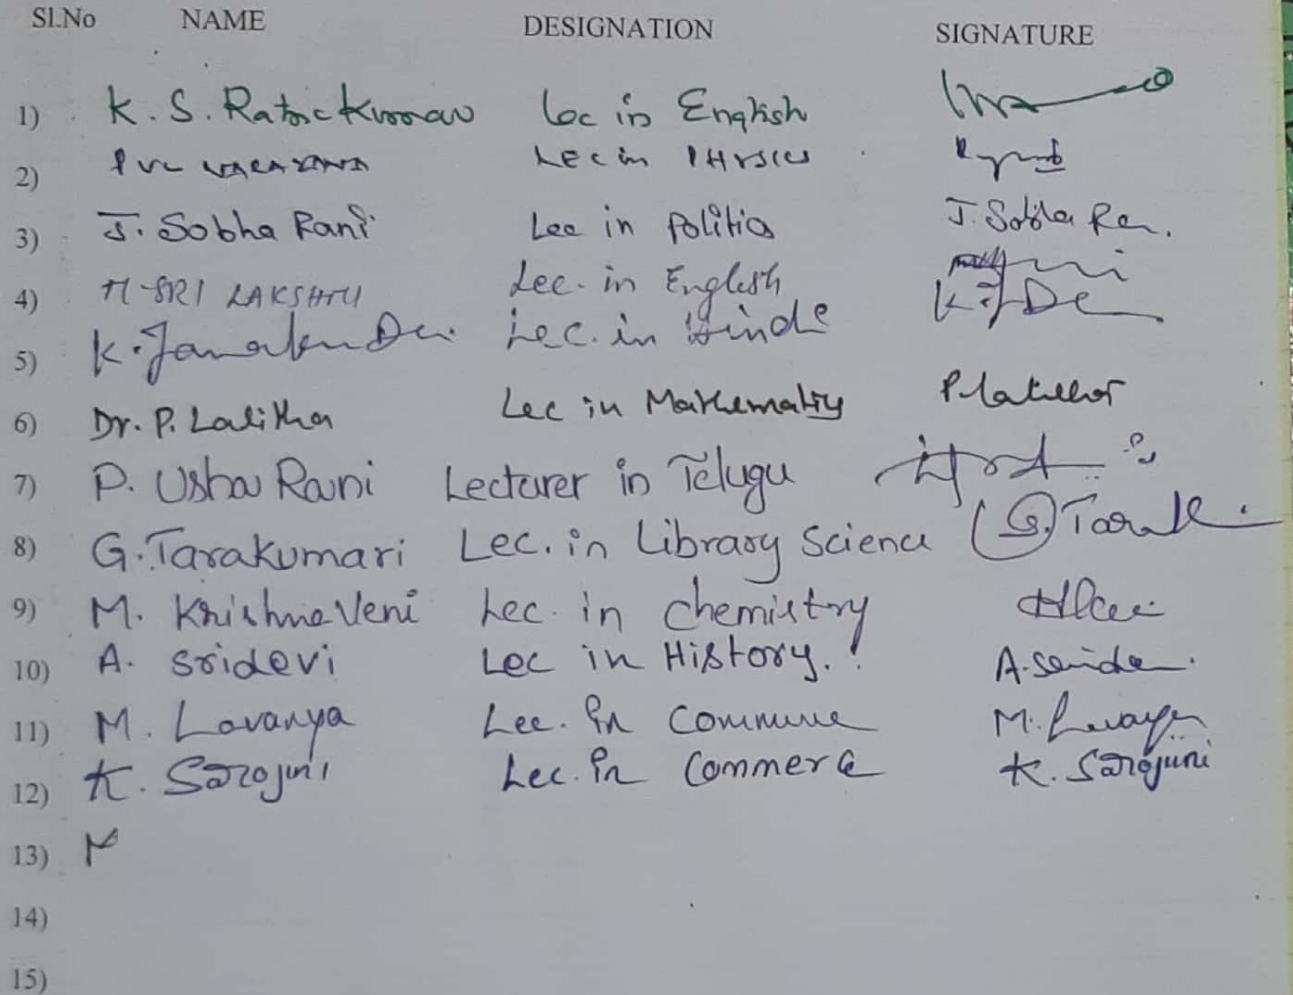 Sl.No NAME DESIGNATION SIGNATURE
1) K. S. Ratna Kumar Lec in English
2) Lec in PHYSICS
3) J. Sobha Rani Lec in politics J. Sobha Ran.
4) M. SRI LAKSHMI Lec. in English
5) K. Lec. in Hindi K.
6) Dr. P. Lalitha Lec in Mathematics
7) P. Usha Rani Lecturer in Telugu
8) G. Tarakumari Lec. in Library Science G. Tarak
9) M. Krishna Veni Lec. in chemistry
10) A. sridevi Lec in History. !
11) M. Lavanya Lec. in Commerce M.
12) K. Sarojini Lec. in Commerce K. Sarojini
13)
14)
15)